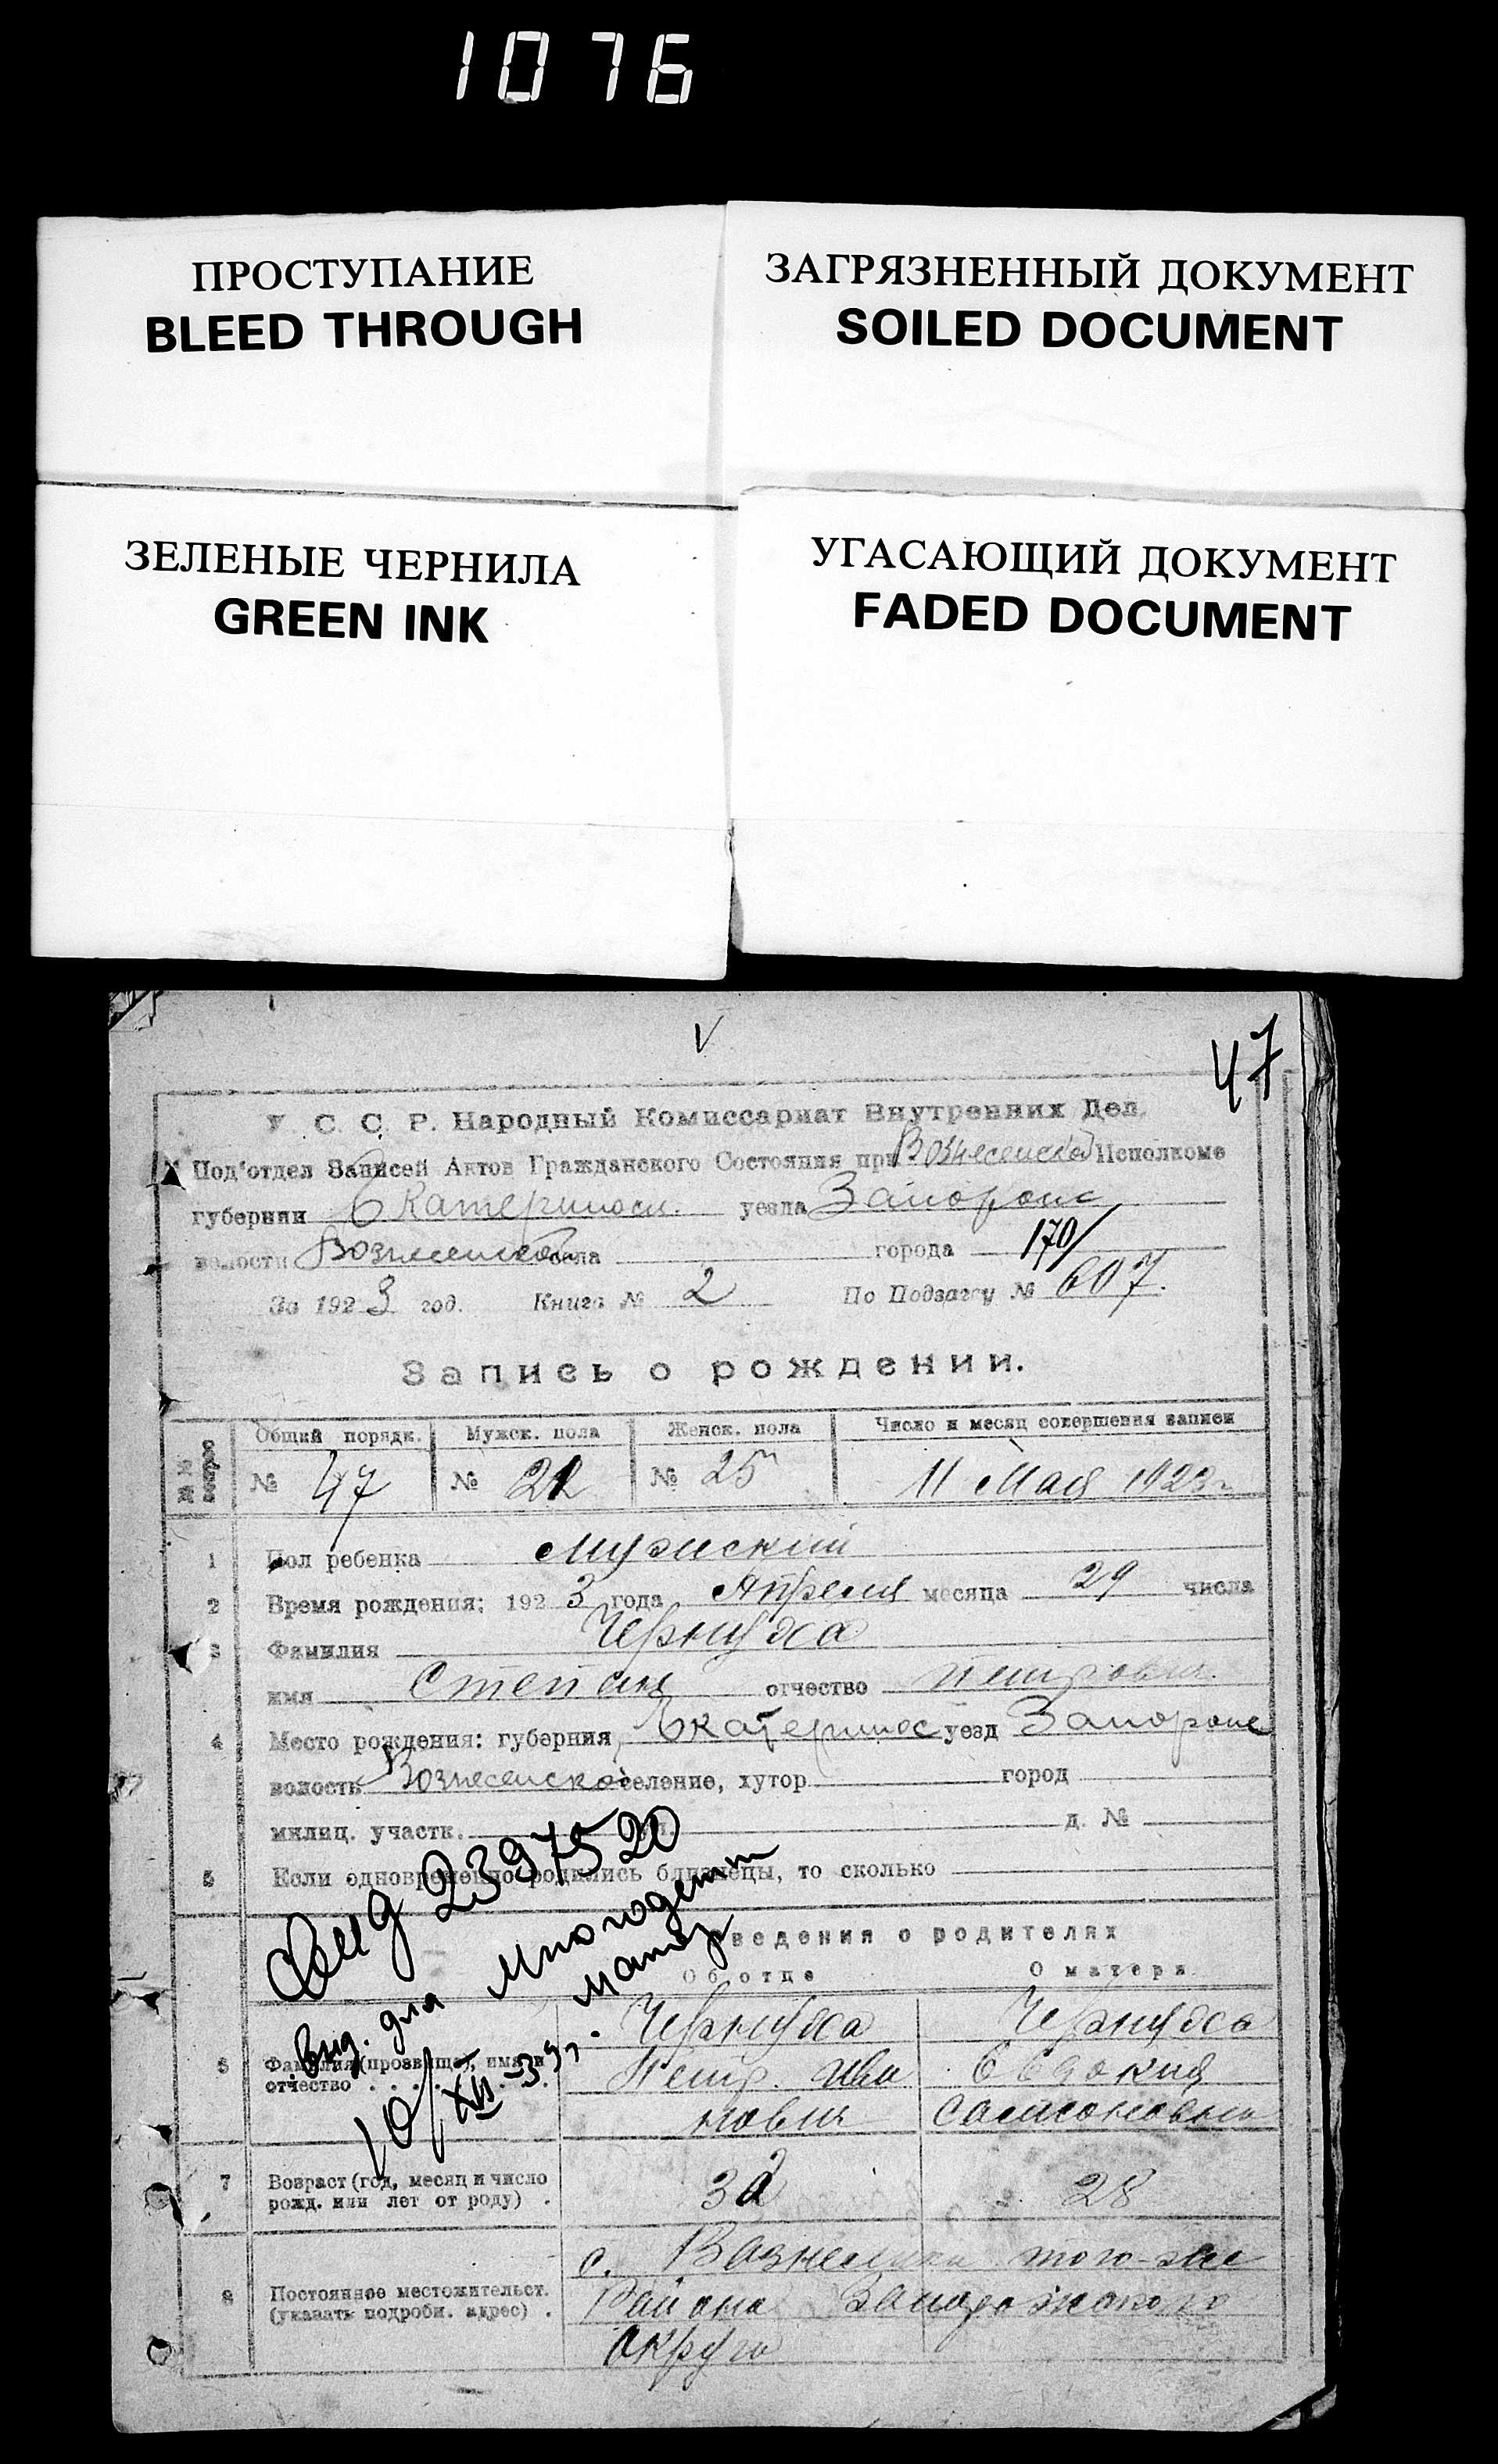 1076
ПРОСТУПАНИЕ
BLEED THROUGH
ЗАГРЯЗНЕННЫЙ ДОКУМЕНТ
SOILED DOCUMENT
ЗЕЛЕНЫЕ ЧЕРНИЛА
GREEN INK
УГАСАЮЩИЙ ДОКУМЕНТ
FADED DOCUMENT
V
47
У. С. С. Р. Народный Комиссариат Внутренних Дел.
Под'отдел Записей Актов Гражданского Состояния при Вознесенской Исполкоме
губернии Екатериносл. уезда Запорожс
волости Вознесенской села города 170/
За 1923 год. Книга № 2 По Подзагсу № 607.
Запись о рождении.
Общий порядк. Мужск. пола Женск. пола Число и месяц совершения записи
№ 47 № 22 № 25 11 Мая 1923 г.
1 Пол ребенка Мужский
2 Время рождения: 1923 года Апреля месяца 29 числа
3 Фамилия Чернуха
имя Степан отчество Петрович
4 Место рождения: губерния Екатеринос уезд Запорожс
волость Вознесенско селение, хутор город
милиц. участк. ул. д. №
5 Если одновременно родились близнецы, то сколько
2397520
выд. для многодетн
матер
10/XII-39г.
Сведения о родителях
Об отце О матери
6 Фамилия (прозвище), имя и отчество
Чернуха Чернуха
Петр. Ива Евдокия
нович Самсоновна
7 Возраст (год, месяц и число рожд. или лет от роду) . 32 28
8 Постоянное местожительст. (указать подробн. адрес) .
с. Вознесенка того-же
Района Запорожского
округа